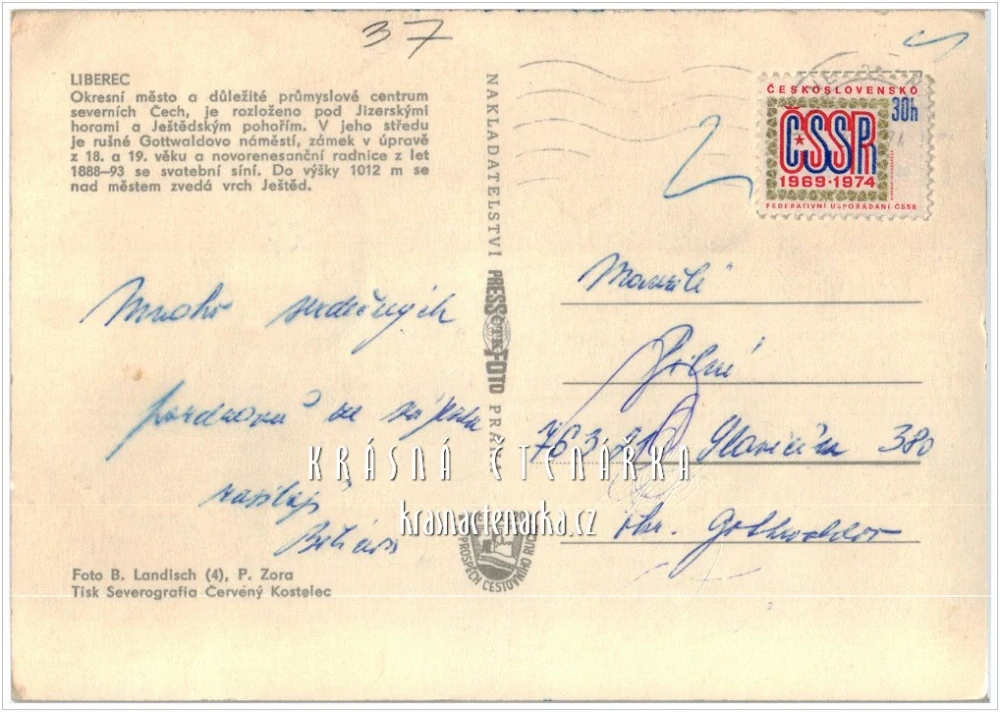 37
LIBEREC
Okresní město a důležité průmyslové centrum
severních Čech, je rozloženo pod Jizerskými
horami a Ještědským pohořím. V jeho středu
je rušné Gottwaldovo náměstí, zámek v úpravě
z 18. a 19. věku a novorenesanční radnice z let
1888–93 se svatební síní. Do výšky 1012 m se
nad městem zvedá vrch Ještěd.
Mnoho srdečných
pozdravů ze
zasílají
Foto B. Landisch (4), P. Zora
Tisk Severografia Červéný Kostelec
NAKLADATELSTVÍ PRESSFOTO PRAHA
ČTK
PROSPĚCH CESTOVNÍHO RUCHU
ČESKOSLOVENSKO
30h
ČSSR
1969·1974
FEDERATIVNÍ USPOŘÁDÁNÍ ČSSR
Manželé
763 Slavičín 380
okr. Gottwaldov
KRÁSNÁ ČTENÁŘKA
krasnactenarka.cz